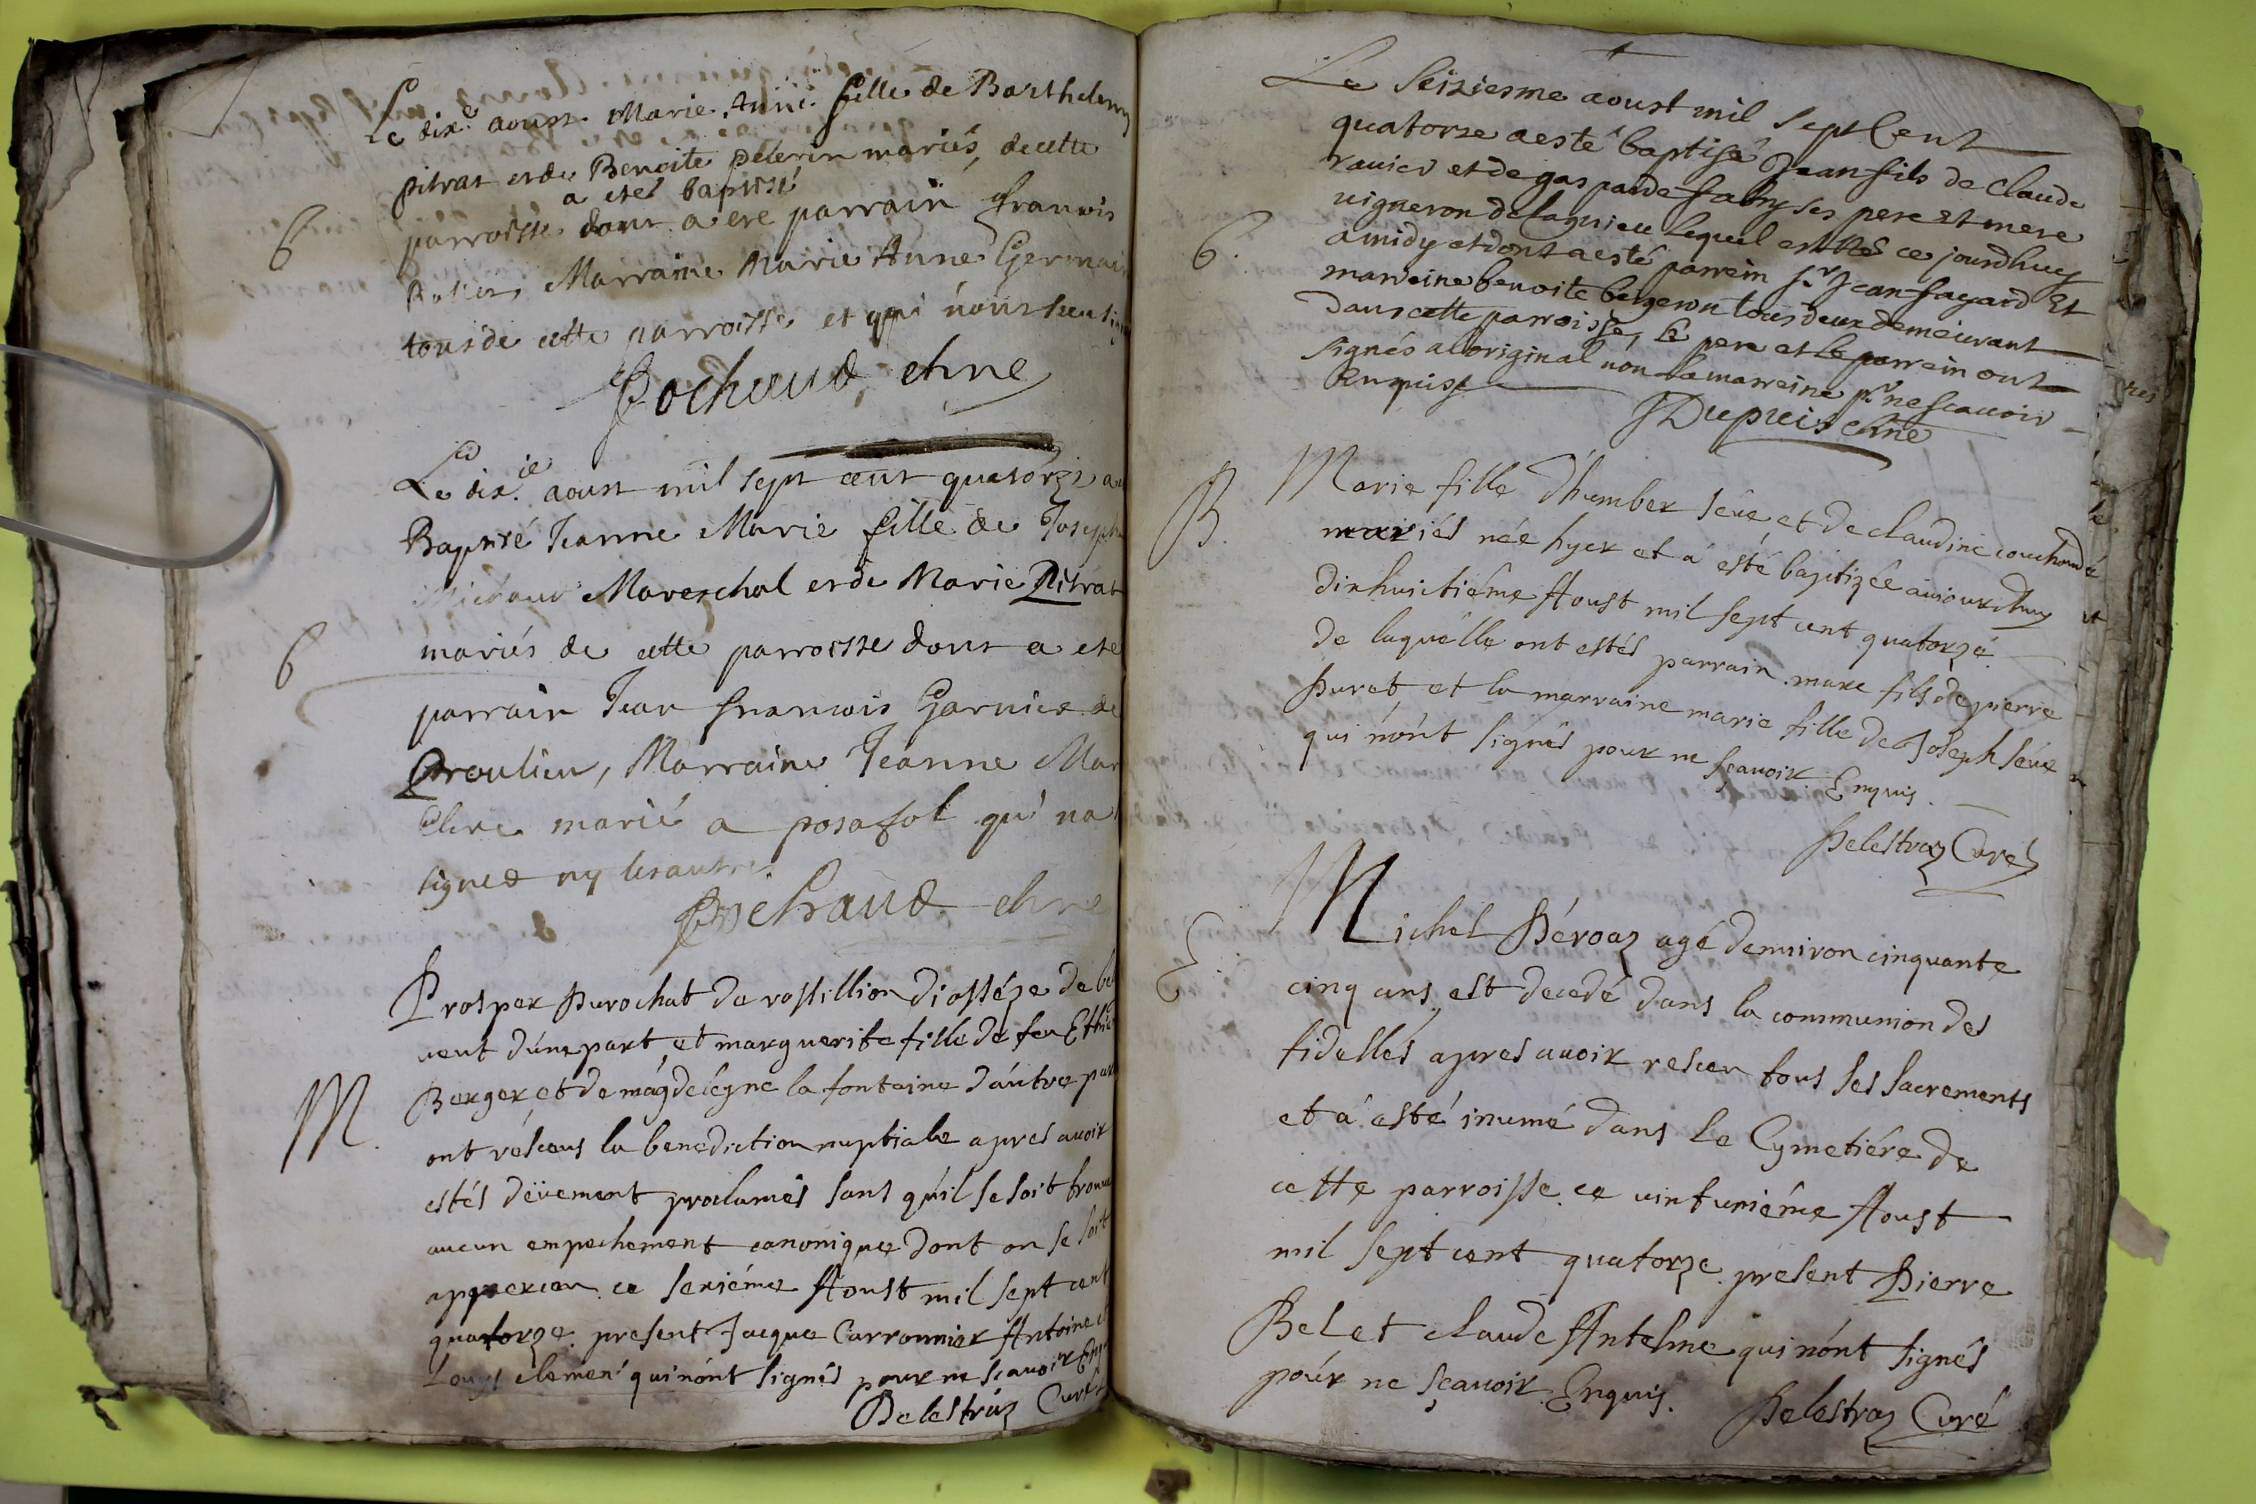 Le dix.e aoust Marie Anne fille de Barthelemy
pitrat et de Benoite pelerin mariés, de cette
a eté baptisé
parroisse dont a ete parrain francois
Marraine Marie Anne Germain
tous de cette parroisse et qui n'ont sceu
B
Pochaud, chne
Le dix.ie aoust mil sept cent quatorze a
Baptisé Jeanne Marie fille de Joseph
Michaud Mareschal et de Marie Pitrat
mariés de cette parroisse dont a eté
B
parrain Jean francois Garnier de
Proulieu, Marraine Jeanne Mar
Clere marié a posafol qui na
signed ny les autres
Pochaud chne
Prosper Purochat de rossillion diosséze de be
M.
uent d'une part, et marguerite fille de feu Ethie
Berger et de mágdeleyne la fontaine d'áutre par
ont résceus la benediction nuptiale apres auoir
estés deüement proclamés sans qu'il se soit trouué
aucun empechement canonique dont on se soit
apperceu ce seziéme Aoust mil sept cent
quatorze present Jacque Carronnier Antoine et
Louys clemen qui nónt signés pour ne scauoir Enq
Delestraz Curé
Le seiziesme aoust mil sept Cent
quatorze a esté baptisé Jean fils de Claude
rauier et de gasparde fabry ses pere et mere
uigneron de lagnieu lequel est né ce jourdhuy
B.
a midy et dont a esté parrein sr Jean fagard Et
marreine benoite bergeron tous deux demeurant
dans cette parroisse, Le pere et le parrein ont
signés a l original non la marreine pr ne scauoir
Enquise
Dupuis chne
Marie fille d'humber séue, et de claudine couchoud
B.
mariés née hyer et a esté baptizée auiourdhuy
dixhuictiéme Aoust mil sept cent quatorzé
de laquélle ont estés parrain marc fils de pierre
Puret, et la marraine marie fille de Joseph séue
qui nónt signés pour ne scauoir Enquis.
Delestraz Curé
Michel Péroaz agé denuiron cinquante
E
cinq ans est decedé dans la communion des
fidellés apres auoir resceu tous ses sacrements
et á esté inumé dans le Cymetiére de
cette parroisse ce uintuniéme Aoust
mil sept cent quatorze present Pierre
Bel et claude Antelme qui nónt signés
póur ne sçauoir Enquis.
Delestraz Curé